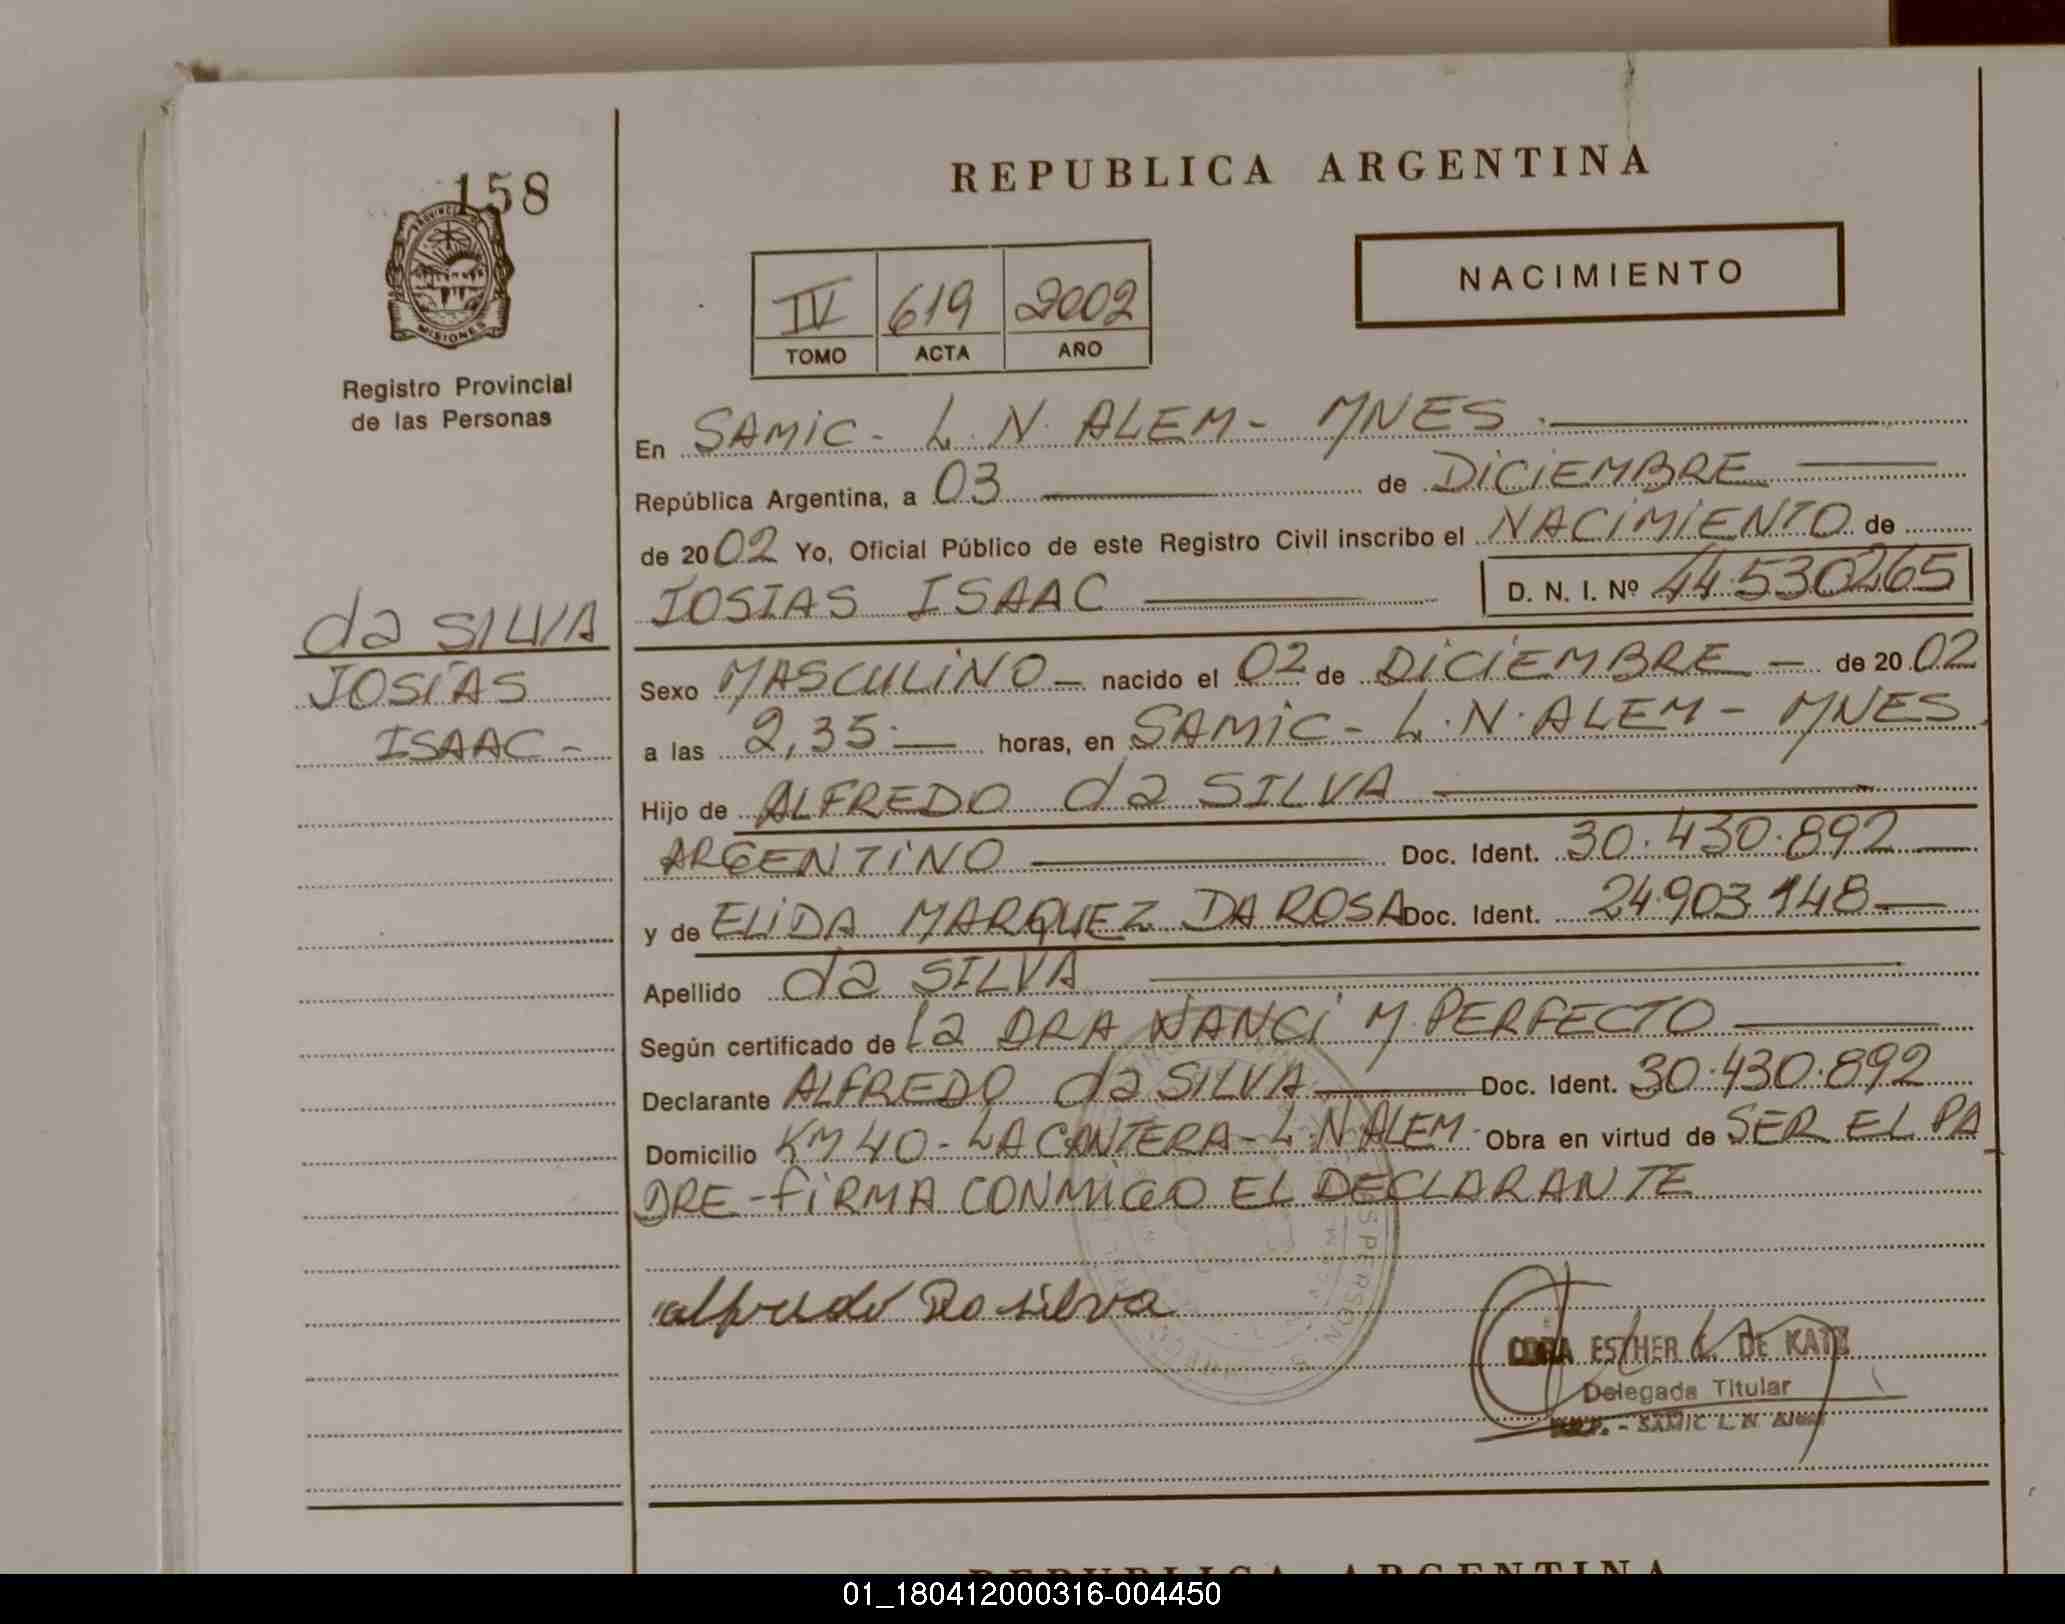 158
PROVINCIA DE
MISIONES
Registro Provincial
de las Personas
da SILVA
JOSÍAS
ISAAC -
REPUBLICA ARGENTINA
NACIMIENTO
IV 619 2002
TOMO ACTA AÑO
En SAMIC - L. N. ALEM - MNES.
República Argentina, a 03 de DICIEMBRE
de 2002 Yo, Oficial Público de este Registro Civil inscribo el NACIMIENTO de
JOSIAS ISAAC D. N. I. Nº 44.530265
Sexo MASCULINO - nacido el 02 de DICIEMBRE - de 2002
a las 2,35 - horas, en SAMIC - L. N. ALEM - MNES
Hijo de ALFREDO da SILVA
ARGENTINO Doc. Ident. 30.430.892
y de ELIDA MARQUEZ DA ROSA Doc. Ident. 24.903.148
Apellido da SILVA
Según certificado de la DRA NANCI M. PERFECTO
Declarante ALFREDO da SILVA Doc. Ident. 30.430.892
Domicilio KM 40 - LA CANTERA - L. N ALEM - Obra en virtud de SER EL PA
DRE - FIRMA CONMIGO EL DECLARANTE
alfredo Da silva
ESTHER DE KATZ
Delegada Titular
SAMIC L. N. Alem
REPUBLICA ARGENTINA
01_180412000316-004450